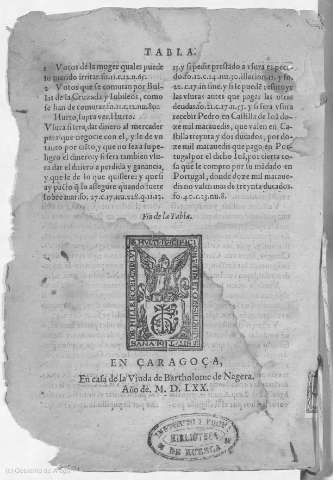 TABLA.
1 Votos de la muger quales puede
lo marido irritar. fo. 11. c. 15. n. 65.
2 Votos que se comutan por Bul-
las de la Cruzada y Iubileos, como
se han de comutar. fo. 11. c. 12. nu. 80.
Hurto, supra ver. Hurto.
Vsura sera, dar dinero al mercader
para que negocie con el, y le de vn
tanto por ciẽto, y que no sea a su pe-
ligro el dinero; y sera tambien vsu-
ra dar el dinero a perdida y ganancia,
y que le de lo que quisiere: y que si
ay pacto q̃ lo assegure quando fuere
sobre mar. fo. 27. c. 17. nu. 228. q. 11. 12.
13. y si pedir prestado a vsura es pecca-
do. fo. 12. c. 14. nu. 30. illacion. 15. y fo.
22. c. 17. in fine. y si se puede restituyr
las vsuras antes que pagar las otras
deudas. fo. 21. c. 17. n. 53. y si sera vsura
recebir Pedro en Castilla de Ioã doze
mil marauedis, que valen en Cas-
tilla treynta y dos ducados, por do-
ze mil marauedis que pago en Por-
tugal por el dicho Ioã, por cierta co-
sa que le compro por su mãdado en
Portugal, donde doze mil marauedis
no valen mas de treynta ducados.
fo. 40. c. 23. nu. 8.
Fin de la Tabla.
EN ÇARAGOÇA,
En casa de la Viuda de Bartholome de Nagera.
Año de. M. D. LXX.
BIBLIOTECA
DE HUESCA
(c) Gobierno de Aragón